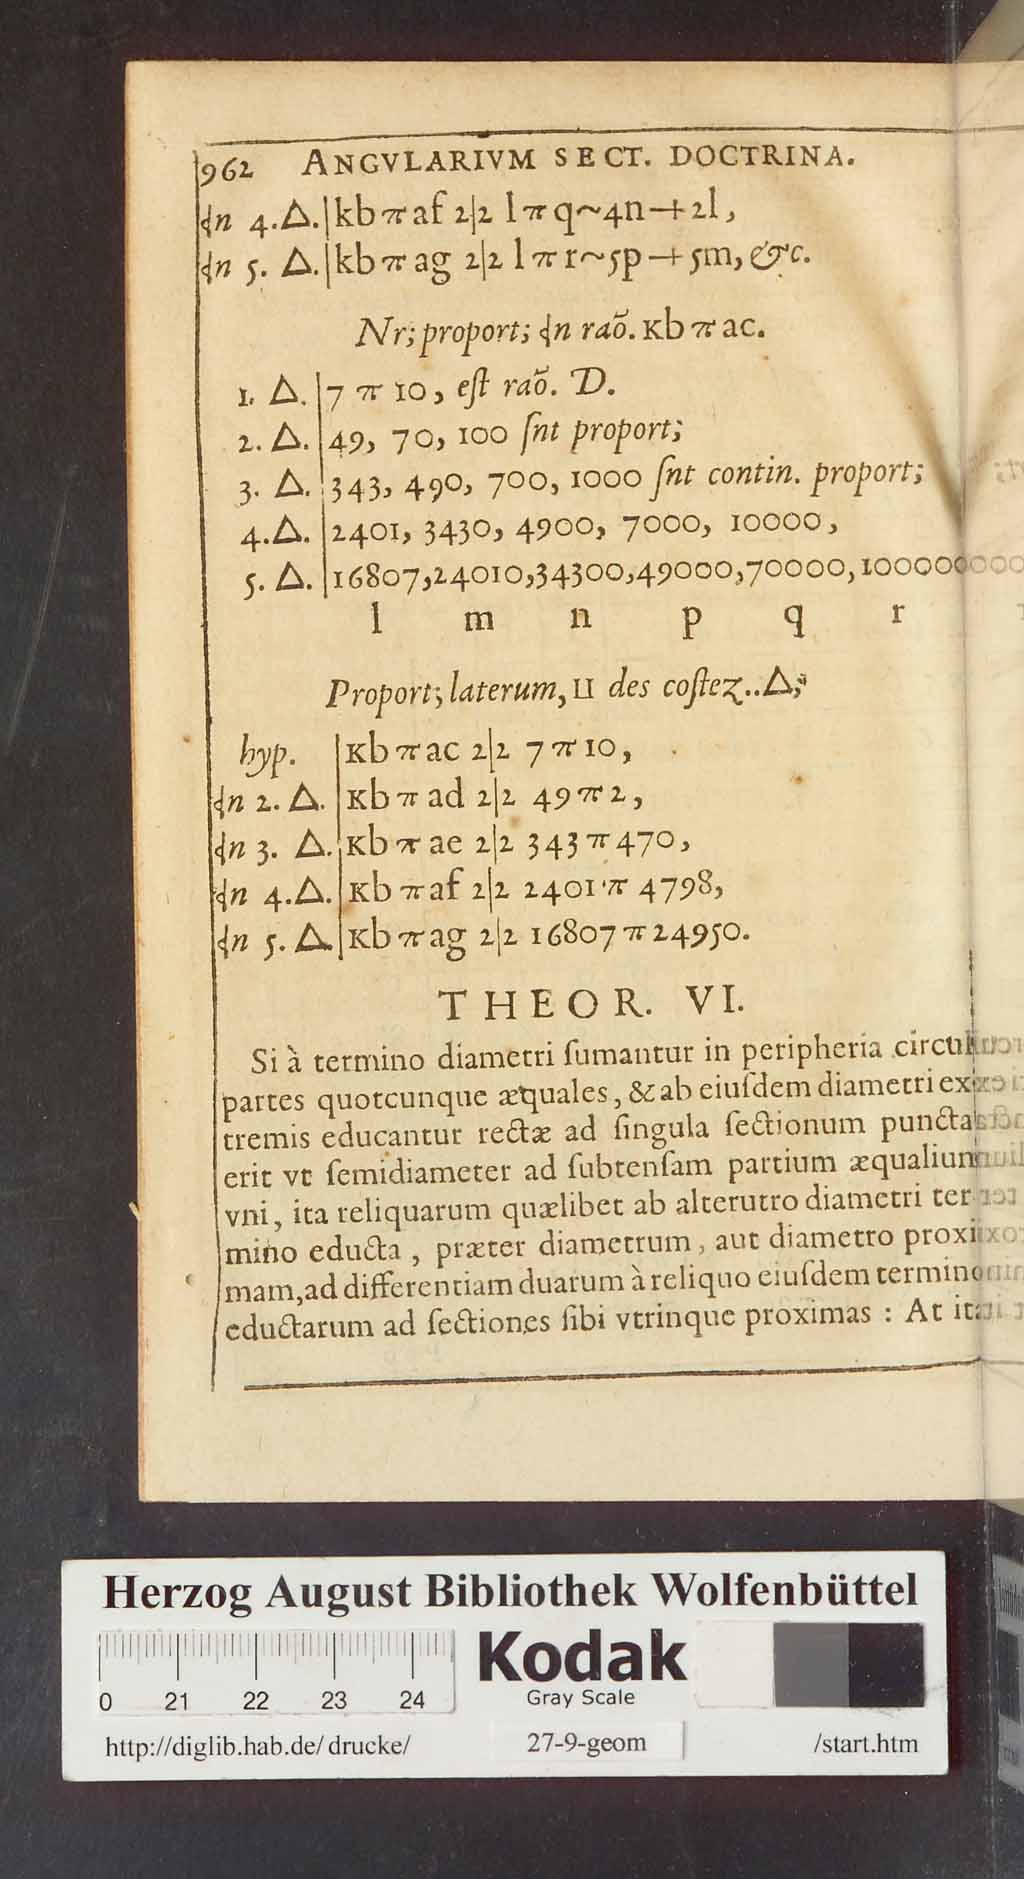 962 ANGVLARIVM SECT. DOCTRINA.
⦠n 4.△.|kb π af 2|2 l π q~4n-+2l,
⦠n 5. △.|kb π ag 2|2 l π r~5p-+5m, &c.
Nr; proport; ⦠n raõ. Kb π ac.
1. △.|7 π 10, eſt raõ. D.
2. △.|49, 70, 100 ſnt proport;
3. △.|343, 490, 700, 1000 ſnt contin. proport;
4.△.|2401, 3430, 4900, 7000, 10000,
5. △.|16807,24010,34300,49000,70000,100000
l m n p q r
Proport; laterum, ⊔ des coſtez..△;
hyp. |Kb π ac 2|2 7 π 10,
⦠n 2. △.|Kb π ad 2|2 49 π 2,
⦠n 3. △.|Kb π ae 2|2 343 π 470,
⦠n 4.△.|Kb π af 2|2 2401 π 4798,
⦠n 5. △.|Kb π ag 2|2 16807 π 24950.
THEOR. VI.
Si à termino diametri ſumantur in peripheria circuli
partes quotcunque æquales, & ab eiuſdem diametri ex
tremis educantur rectæ ad ſingula ſectionum puncta
erit vt ſemidiameter ad ſubtenſam partium æqualium
vni, ita reliquarum quælibet ab alterutro diametri ter
mino educta, præter diametrum, aut diametro proxi
mam, ad differentiam duarum à reliquo eiuſdem termino
eductarum ad ſectiones ſibi vtrinque proximas : At ita
Herzog August Bibliothek Wolfenbüttel
0 21 22 23 24
Kodak
Gray Scale
http://diglib.hab.de/drucke/ 27-9-geom /start.htm